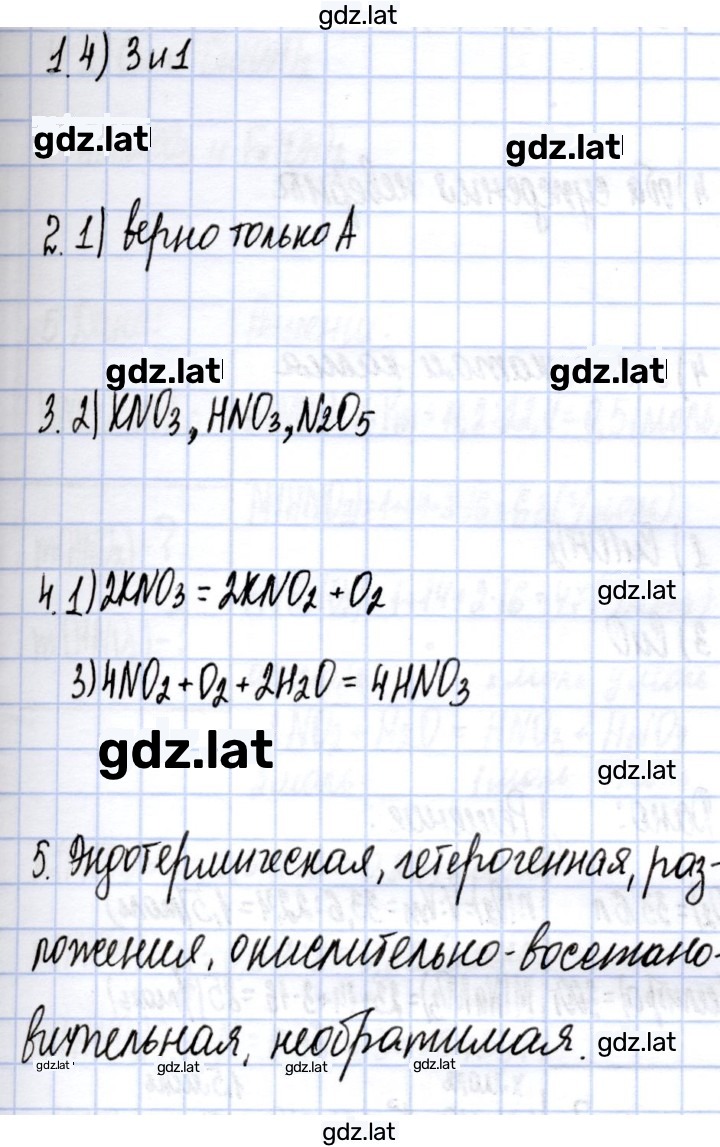 gdz.lat
1.4) 3 и 1
gdz.lat gdz.lat
2. 1) верно только А
gdz.lat gdz.lat
3. 2) KNO3, HNO3, N2O5
4. 1) 2KNO3 = 2KNO2 + O2 gdz.lat
3) 4NO2 + O2 + 2H2O = 4HNO3
gdz.lat gdz.lat
5. Эндотермическая, гетерогенная, раз-
ложения, окислительно-восстано-
вительная, необратимая. gdz.lat
gdz.lat gdz.lat gdz.lat gdz.lat
gdz.lat